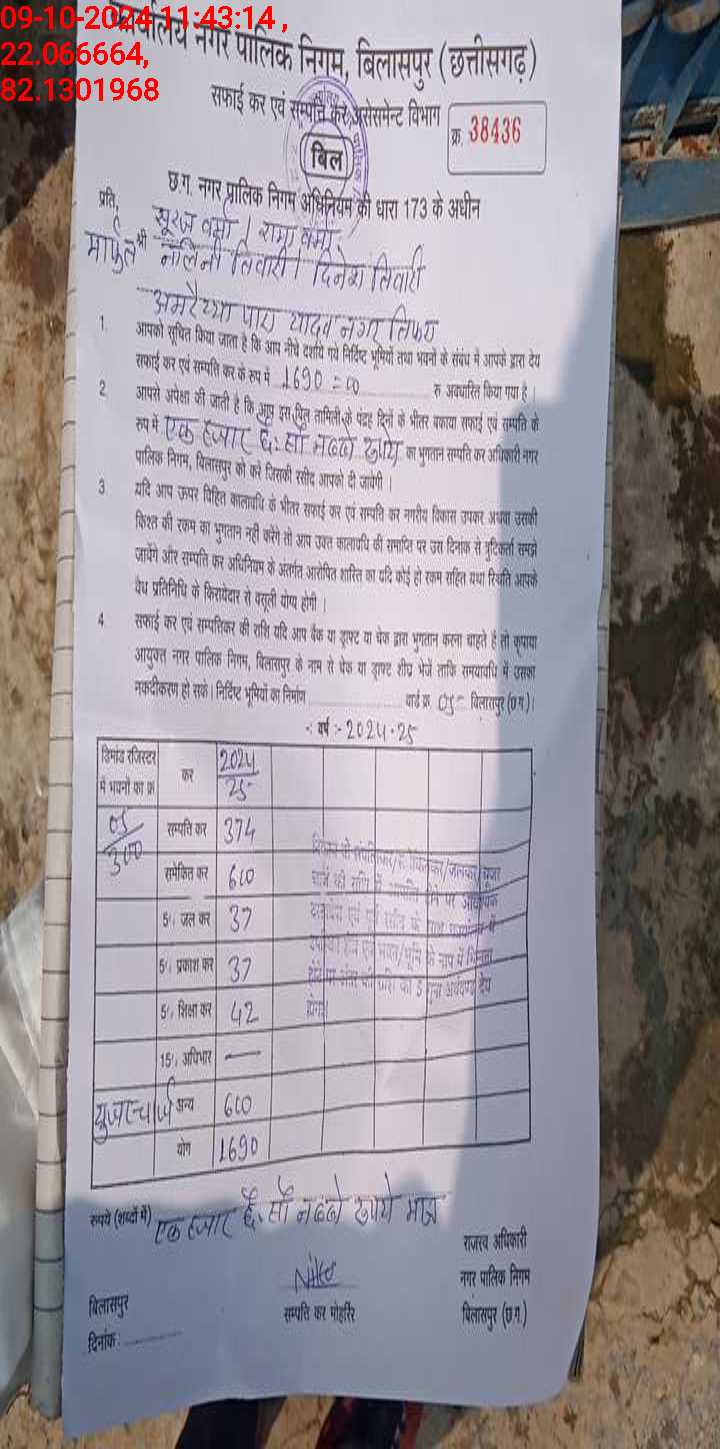 09-10-2024 11:43:14 ,
22.066664,
82.1301968
कार्यालय नगर पालिक निगम, बिलासपुर (छत्तीसगढ़)
सफाई कर एवं सम्पत्ति कर असेसमेन्ट विभाग
क्र. 38436
बिल
छ.ग. नगर पालिक निगम अधिनियम की धारा 173 के अधीन
प्रति,
सूरज वर्मा । रामा वर्मा
श्री नलिनी तिवारी । दिनेश तिवारी
यादव नगर तिफरा
1. आपको सूचित किया जाता है कि आप नीचे दर्शाये गये निर्दिष्ट भूमियों तथा भवनों के संबंध में आपके द्वारा देय
सफाई कर एवं सम्पति कर के रुप में 1690 = 00 रु अवधारित किया गया है।
2. आपसे अपेक्षा की जाती है कि आप इस बिल तामिली के पंद्रह दिनों के भीतर बकाया सफाई एवं सम्पति के
रुप में एक हजार छः सौ नब्बे रुपये का भुगतान सम्पति कर अधिकारी नगर
पालिक निगम, बिलासपुर को करे जिसकी रसीद आपको दी जायेगी ।
3. यदि आप ऊपर विहित कालावधि के भीतर सफाई कर एवं सम्पति कर नगरीय विकास उपकर अथवा उसकी
किश्त की रकम का भुगतान नही करेंगे तो आप उक्त कालावधि की समाप्ति पर उस दिनाक से त्रुटिकर्ता समझे
जायेंगे और सम्पति कर अधिनियम के अर्तगत आरोपित शास्ति का यदि कोई हो रकम सहित यथा स्थिति आपके
वैध प्रतिनिधि के किरायेदार से वसूली योग्य होगी ।
4. सफाई कर एवं सम्पतिकर की राशि यदि आप बैंक या ड्राफ्ट या चेक द्वारा भुगतान करना चाहते है तो कृपाया
आयुक्त नगर पालिक निगम, बिलासपुर के नाम से चेक या ड्राफ्ट शीघ्र भेजें ताकि समयावधि में उसका
नकदीकरण हो सके। निर्दिष्ट भूमियों का निर्माण वार्ड क्र. 05 बिलासपुर (छ.ग.)।
वर्ष :- 2024-25
डिमांड रजिस्टर में भवनों का क्र कर 2024/25
05/300 सम्पति कर 374
समेकित कर 600
5% जल कर 37
5% प्रकाश कर 37
5% शिक्षा कर 42
15% अधिभार —
यूजर चार्ज अन्य 600
योग 1690
रुपये (शब्दों में) एक हजार छः सौ नब्बे रुपये मात्र
राजस्व अधिकारी
नगर पालिक निगम
बिलासपुर (छ.ग.)
सम्पति कर मोहर्रिर
बिलासपुर
दिनांक